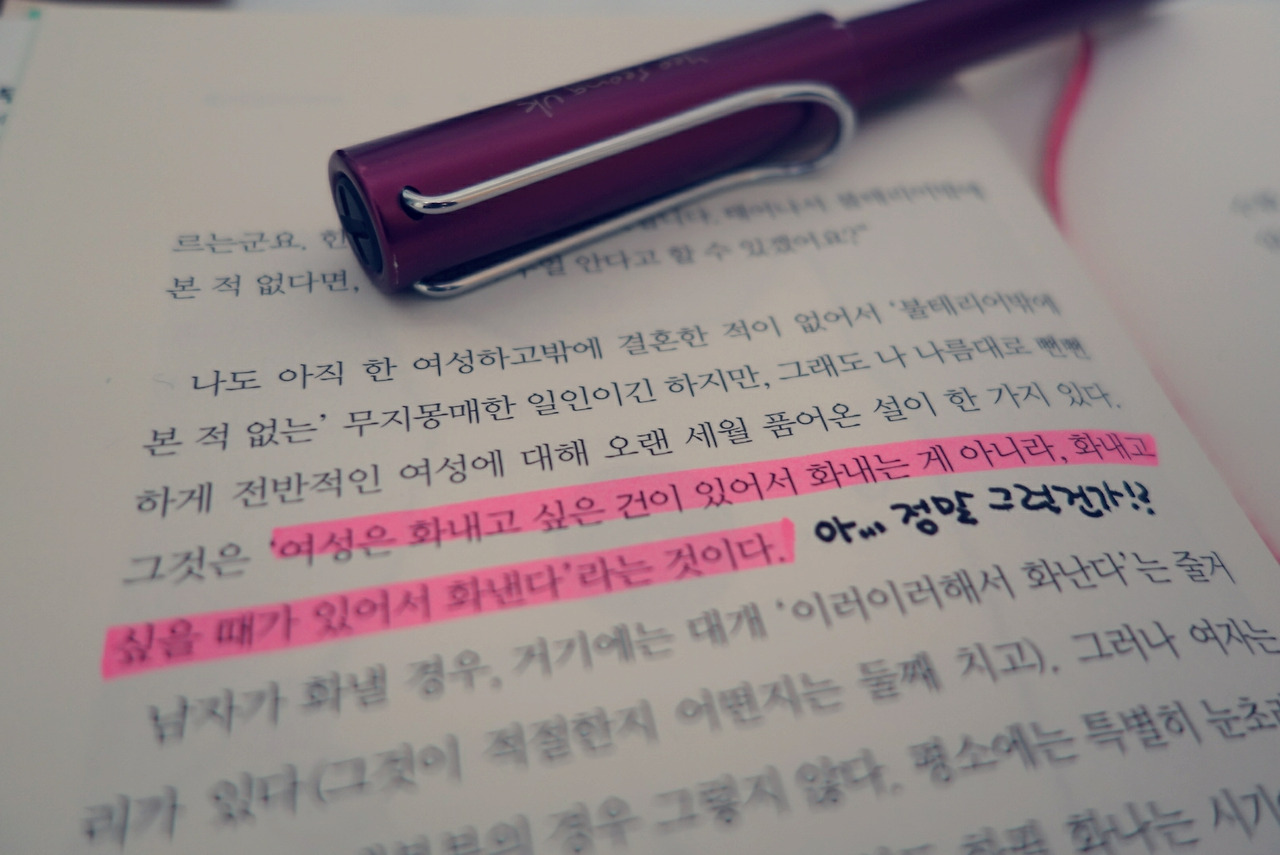 Yeo Seong Uk
르는군요. 한 불테리어밖에
본 적 없다면, 안다고 할 수 있겠어요?”
나도 아직 한 여성하고밖에 결혼한 적이 없어서 ‘불테리어밖에
본 적 없는’ 무지몽매한 일인이긴 하지만, 그래도 나 나름대로 뻔뻔
하게 전반적인 여성에 대해 오랜 세월 품어온 설이 한 가지 있다.
그것은 ‘여성은 화내고 싶은 건이 있어서 화내는 게 아니라, 화내고
싶을 때가 있어서 화낸다’라는 것이다. 아... 정말 그런건가!?
남자가 화낼 경우, 거기에는 대개 ‘이러이러해서 화난다’는 줄거
리가 있다(그것이 적절한지 어떤지는 둘째 치고). 그러나 여자는
경우 그렇지 않다. 평소에는 특별히 눈초리
화나는 시기